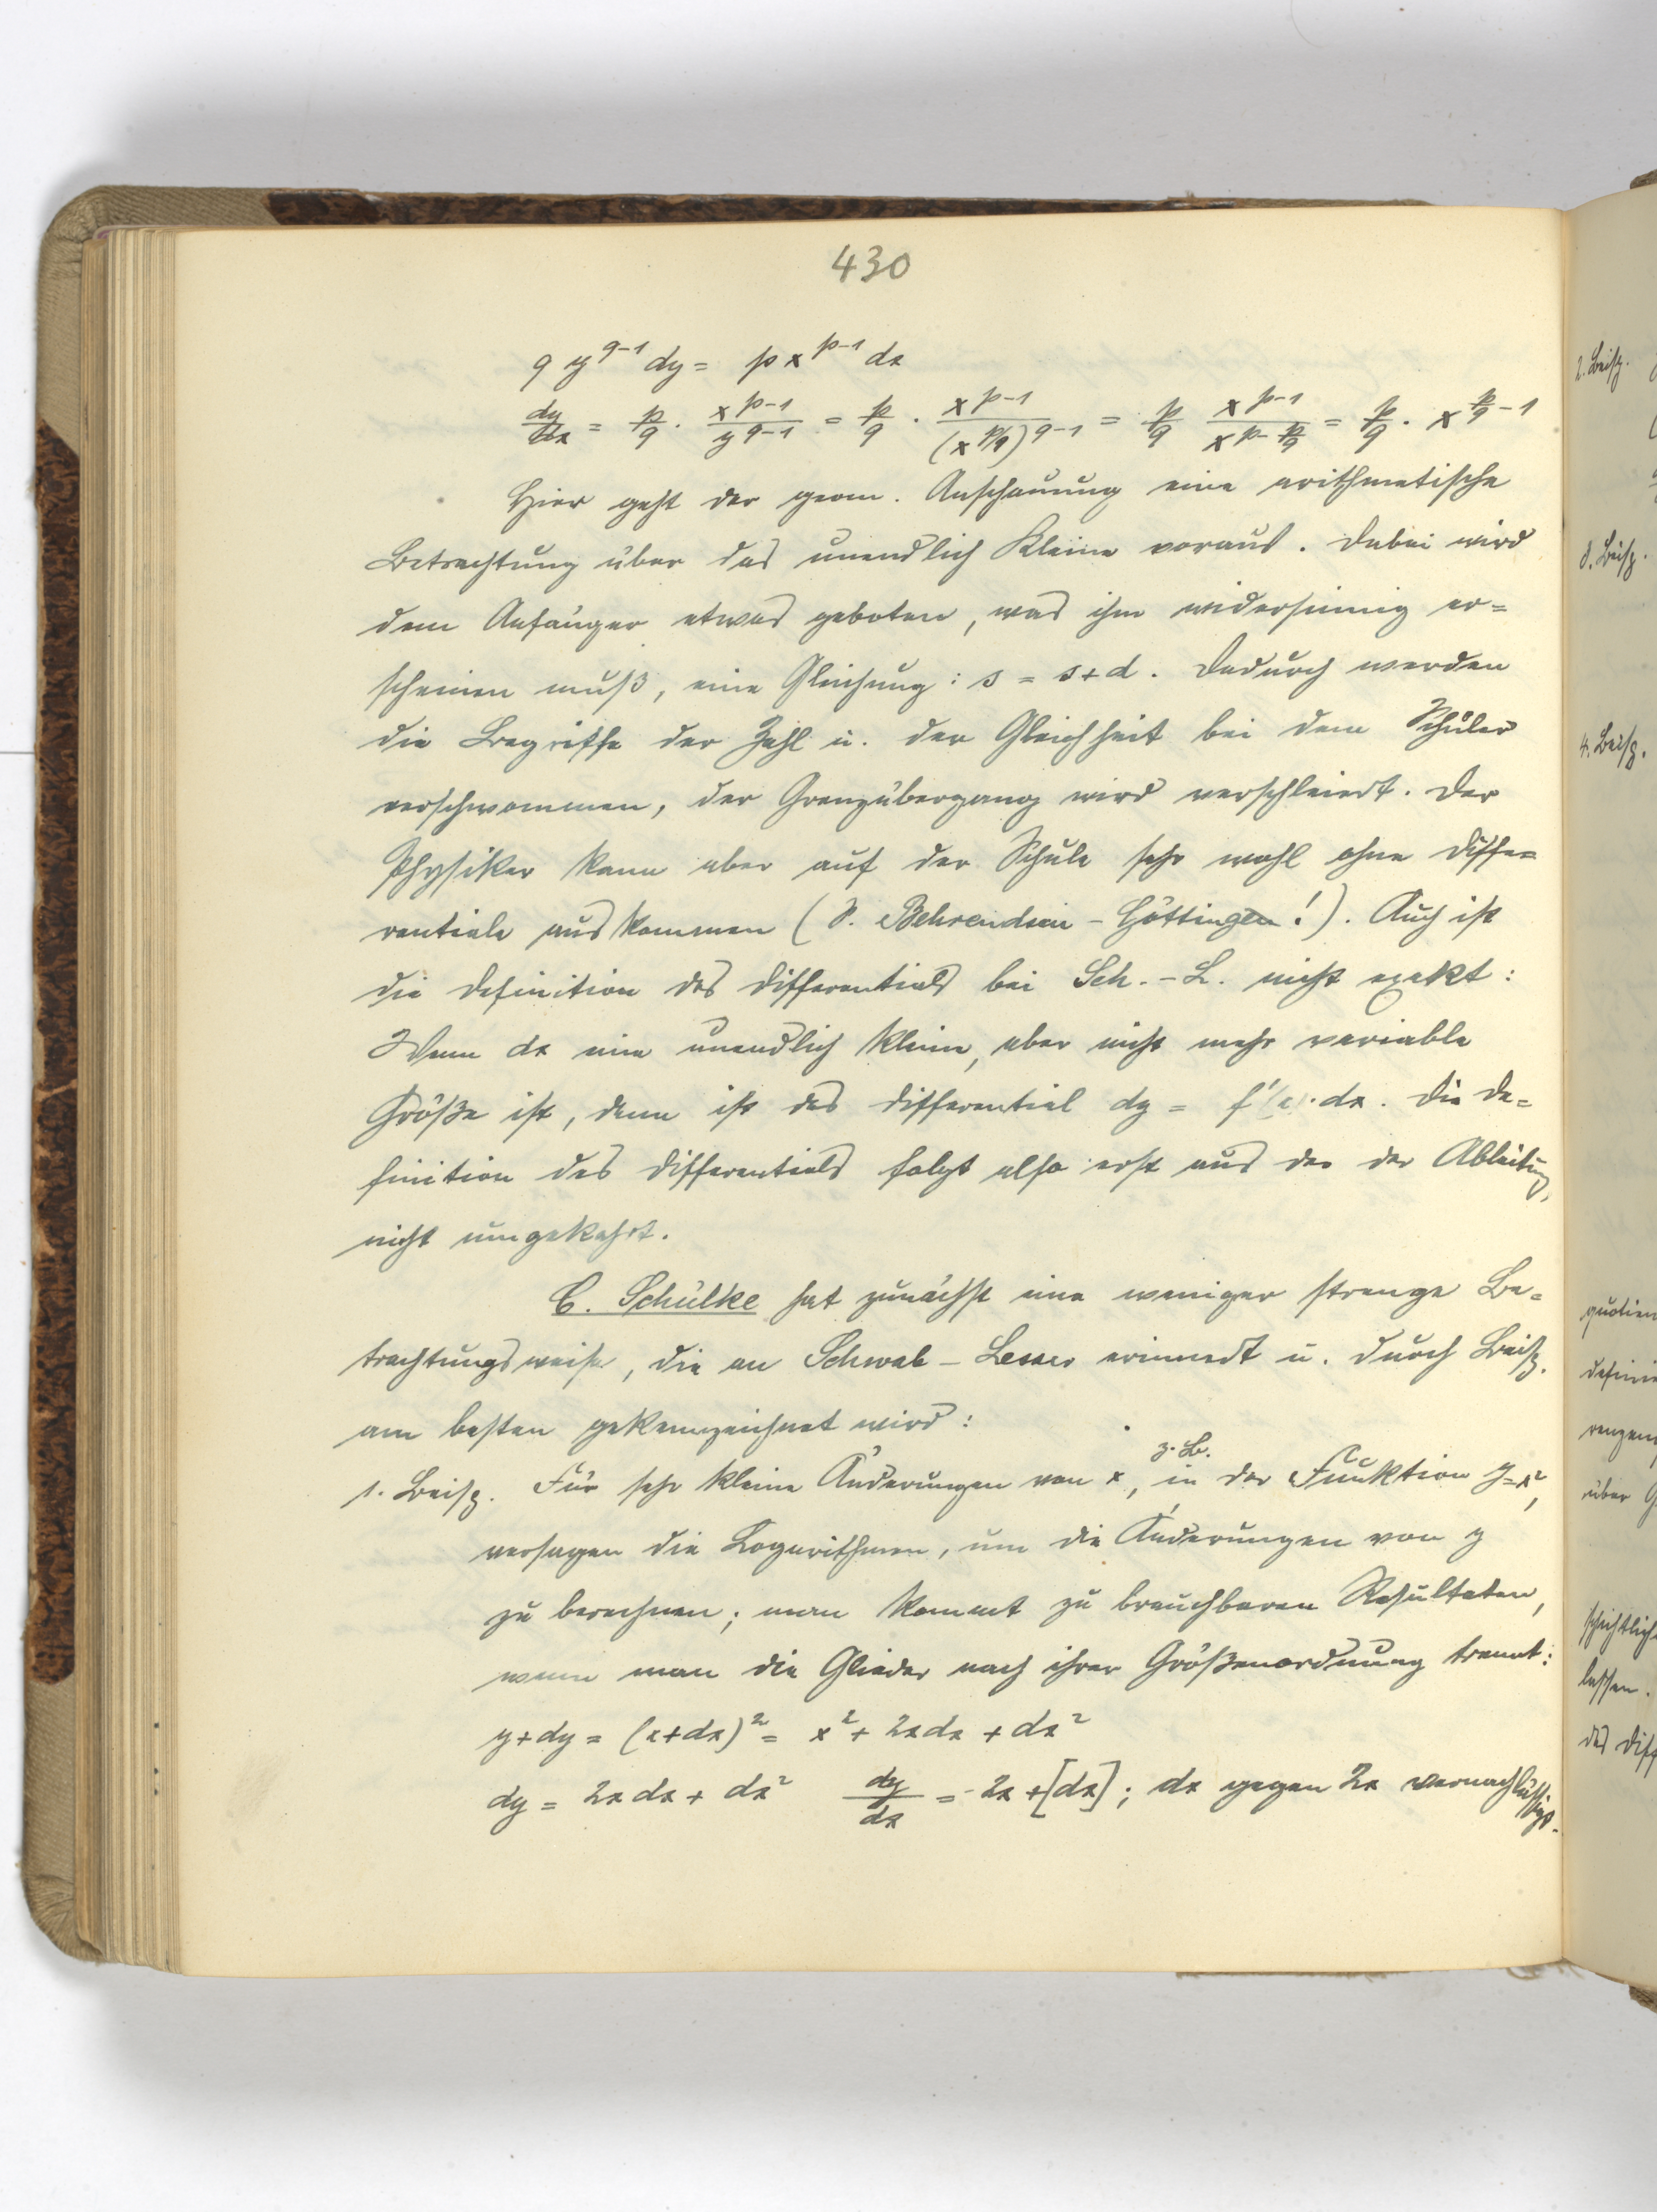 430
q y^{q-1} dy = p x^{p-1} dx
dy/dx = p/q · x^{p-1}/y^{q-1} = p/q · x^{p-1}/(x^{p/q})^{q-1} = p/q x^{p-1}/x^{p-p/q} = p/q · x^{p/q-1}
Hier geht der geom. Anschauung eine arithmetische
Betrachtung über das unendlich Kleine voraus. Dabei wird
dem Anfänger etwas geboten, was ihm widersinnig er=
scheinen muß, eine Gleichung: s = s+d. Dadurch werden
die Begriffe der Zahl u. der Gleichheit bei dem Schüler
verschwommen, der Grenzübergang wird verschleiert. Der
Physiker kann aber auf der Schule sehr wohl ohne Diffe=
rentiale auskommen (S. Behrendsen - Göttingen!). Auch ist
die Definition des Differentials bei Sch.-L. nicht exakt:
Wenn dx eine unendlich kleine, aber nicht mehr variable
Größe ist, dann ist das Differential dy = f'(x)·dx. Die De=
finition des Differentials folgt also erst aus der der Ableitung,
nicht umgekehrt.
C. Schülke hat zunächst eine weniger strenge Be=
trachtungsweise, die an Schwab-Lesser erinnert u. durch Beisp.
am besten gekennzeichnet wird:
z. B.
1. Beisp. Für sehr kleine Änderungen von x, in der Funktion y=x²,
versagen die Logarithmen, um die Änderungen von y
zu berechnen; man kommt zu brauchbaren Resultaten,
wenn man die Glieder nach ihrer Größenordnung trennt:
y+dy = (x+dx)² = x² + 2xdx + dx²
dy = 2xdx + dx² dy/dx = 2x +[dx]; dx gegen 2x vernachlässigt.
2. Beisp.
3. Beisp.
4. Beisp.
quotien
definie
über G
lassen.
des Diff